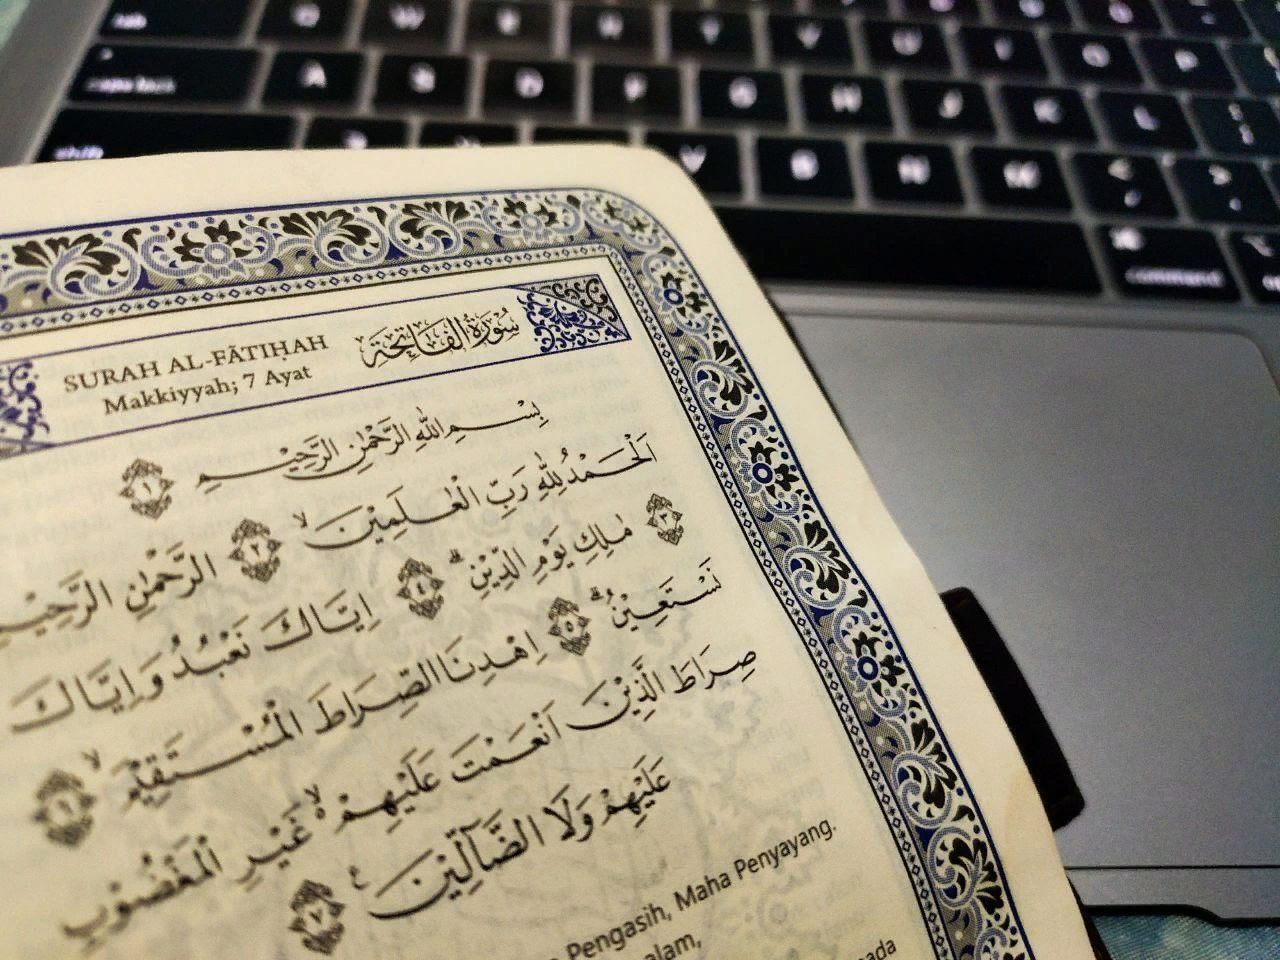 tab Q W E R T Y U I O P
caps lock A S D F G H J K L
shift V B N M
command
SURAH AL-FĀTIḤAH سُوْرَةُ الْفَاتِحَةِ
Makkiyyah; 7 Ayat
بِسْمِ اللّٰهِ الرَّحْمٰنِ الرَّحِيْمِ ١
اَلْحَمْدُ لِلّٰهِ رَبِّ الْعٰلَمِيْنَۙ ٢ الرَّحْمٰنِ الرَّحِيْمِ
٣ مٰلِكِ يَوْمِ الدِّيْنِۗ ٤ اِيَّاكَ نَعْبُدُ وَاِيَّاكَ
نَسْتَعِيْنُۗ ٥ اِهْدِنَا الصِّرَاطَ الْمُسْتَقِيْمَۙ ٦
صِرَاطَ الَّذِيْنَ اَنْعَمْتَ عَلَيْهِمْ ەۙ غَيْرِ الْمَغْضُوْبِ
عَلَيْهِمْ وَلَا الضَّاۤلِّيْنَ ࣖ ٧
Pengasih, Maha Penyayang.
alam,